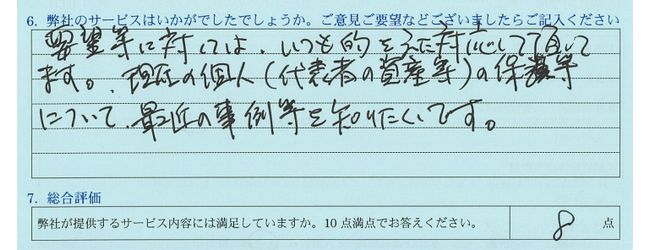 6. 弊社のサービスはいかがでしたでしょうか。ご意見ご要望などございましたらご記入ください
要望等に対しては、いつも的をえた対応して頂いて
ます。現在の個人(代表者の資産等)の保護等
について、最近の事例等を知りたいです。
7. 総合評価
弊社が提供するサービス内容には満足していますか。10点満点でお答えください。 8 点